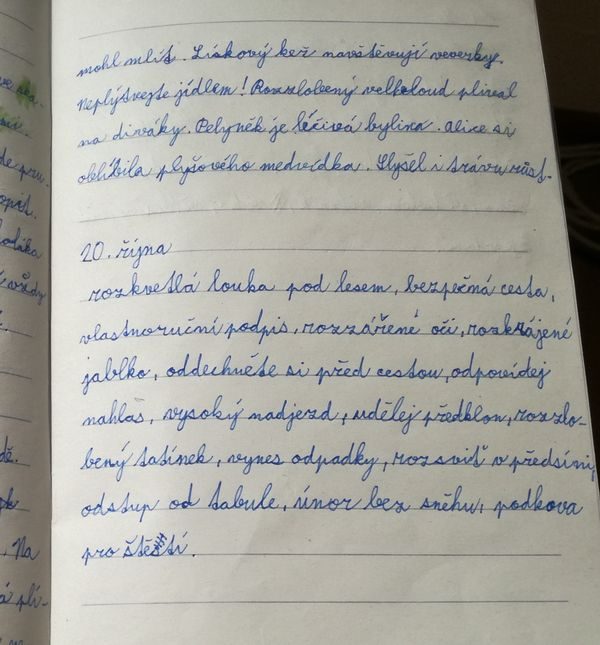 mohl mlít. Lískový keř navštěvují veverky.
Neplýtvejte jídlem! Rozzlobený velbloud plival
na diváky. Pelyněk je léčivá bylina. Alice si
oblíbila plyšového medvídka. Slyšel i trávu růst.
20. října
rozkvetlá louka pod lesem, bezpečná cesta,
vlastnoruční podpis, rozzářené oči, rozkrájené
jablko, oddechněte si před cestou, odpovídej
nahlas, vysoký nadjezd, udělej předklon, rozzlo-
bený tatínek, vynes odpadky, rozsviť v předsíni,
odstup od tabule, únor bez sněhu, podkova
pro štěstí.
vždy
Na